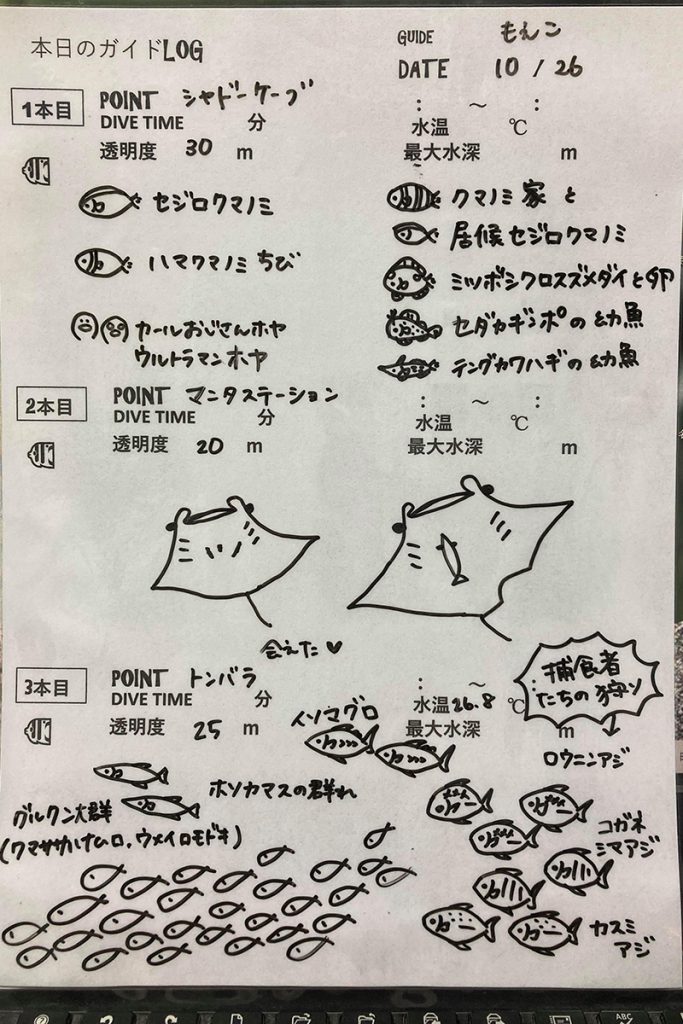 本日のガイドLOG
GUIDE もえこ
DATE 10 / 26
1本目 POINT シャドーケーブ : ～ :
DIVE TIME 分 水温 ℃
透明度 30 m 最大水深 m
セジロクマノミ
クマノミ家と
居候セジロクマノミ
ハマクマノミちび
ミツボシクロスズメダイと卵
カールおじさんホヤ
ウルトラマンホヤ
セダカギンポの幼魚
テングカワハギの幼魚
2本目 POINT マンタステーション : ～ :
DIVE TIME 分 水温 ℃
透明度 20 m 最大水深 m
会えた♥
3本目 POINT トンバラ : ～
DIVE TIME 分 水温 26.8 ℃
透明度 25 m 最大水深 m
捕食者
たちの狩り
イソマグロ
ロウニンアジ
ホソカマスの群れ
グルクン大群
(クマササハナムロ, ウメイロモドキ)
コガネ
シマアジ
カスミ
アジ
ABC